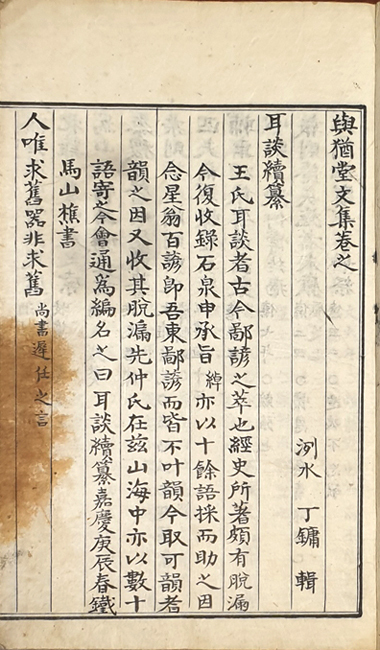 與猶堂文集卷之
洌水 丁鏞 輯
耳談續纂
王氏耳談者古今鄙諺之萃也經史所著頗有脫漏
今復收錄石泉申承旨綽亦以十餘語採而助之因
念星翁百諺卽吾東鄙諺而皆不叶韻今取可韻者
韻之因又收其脫漏先仲氏在玆山海中亦以數十
語寄芩會通爲編名之曰耳談續纂嘉慶庚辰春鐵
馬山樵書
人唯求舊器非求舊尚書遲任之言